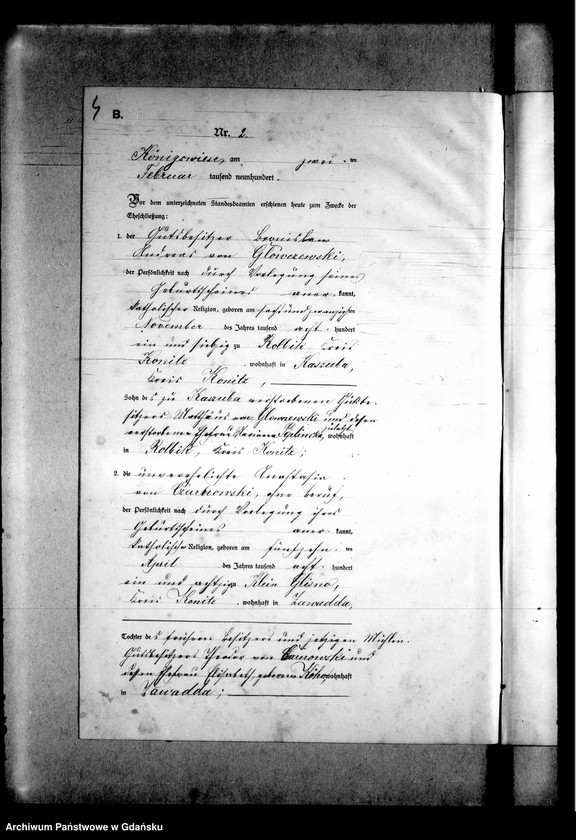 B.
Nr. 2.
Königswiese, am zwei ten
Februar tausend neunhundert.
Vor dem unterzeichneten Standesbeamten erschienen heute zum Zwecke der
Eheschließung:
1. der Gutsbesitzer Bronislaw
Andreas von Glowczewski,
der Persönlichkeit nach durch Vorlegung seines
Geburtsscheines aner kannt,
katholischer Religion, geboren am sechsundzwanzigsten
November des Jahres tausend acht hundert
ein und siebzig zu Rolbik, Kreis
Konitz, wohnhaft in Kaszuba,
Kreis Konitz,
Sohn des zu Kaszuba verstorbenen Gutsbe-
sitzers Matthäus von Glowczewski und dessen
verstorbener Ehefrau Marianna zuletzt wohnhaft
in Rolbik, Kreis Konitz;
2. die unverehelichte Anastasia
von Czarnowski, ohne Beruf,
der Persönlichkeit nach durch Vorlegung ihres
Geburtsscheines aner kannt,
katholischer Religion, geboren am fünfzehn ten
April des Jahres tausend acht hundert
ein und achtzig zu Klein Glisno,
Kreis Konitz, wohnhaft in Zawadda,
Tochter des früheren Besitzers und jetzigen Mühlen-
Gutsbesitzers Theodor von Czarnowski und
dessen Ehefrau Elisabeth, geborenen wohnhaft
in Zawadda;
Archiwum Państwowe w Gdańsku